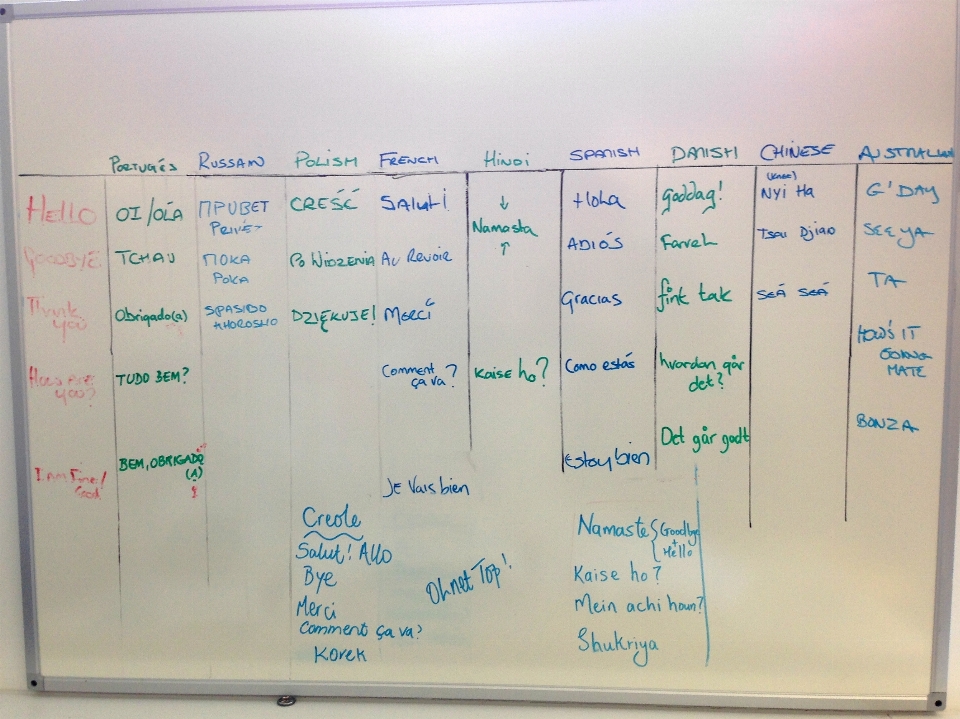 PORTUGÉS RUSSAIN POLISH FRENCH HINDI SPANISH DANISH CHINESE AUSTRALIAN
HELLO OI/OLÁ ПРИВЕТ CREŚĆ SALUT! ↓ Hola goddag! NYI HA G'DAY
PRIVE-
Namasta
GOODBYE TCHAU ПОКА PO WIDZENIA AU REVOIR ↑ ADIÓS Farvel TSAI DJIAO SEE YA
POKA
Thank you Obrigado(a) SPASIBO DZIĘKUJE! MERCI Gracias fink tak SEÁ SEÁ TA
KHOROSHO
HOW ARE YOU? TUDO BEM? COMMENT ÇA VA? KAISE HO? COMO ESTÁS hvordan går det? HOW'S IT
GOING
MATE
I AM Fine/ Good BEM, OBRIGADO (A) JE VAIS BIEN Estoy bien Det går godt BONZA
Creole
Salut! Allo
Bye
Merci
Comment ça va?
Korek
Oh net Top!
Namaste { Goodbye
+
Hello
Kaise ho?
Mein achi houn?
Shukriya